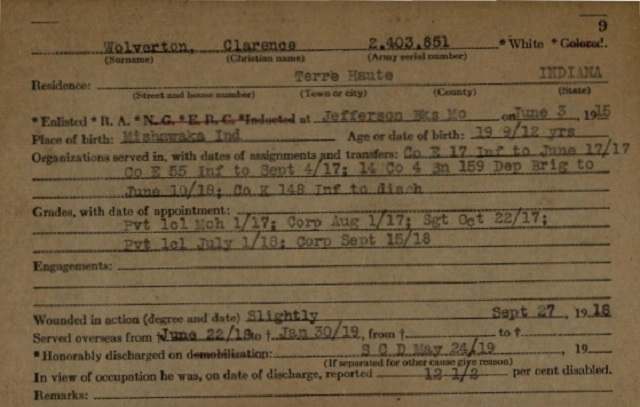 9
Wolverton, Clarence 2,403,651 * White * Colored.
(Surname) (Christian name) (Army serial number)
Residence: Terre Haute INDIANA
(Street and house number) (Town or city) (County) (State)
* Enlisted * R. A. * N. G. * E. R. C. * Inducted at Jefferson Bks Mo on June 3, 1915
Place of birth: Mishawaka Ind Age or date of birth: 19 9/12 yrs
Organizations served in, with dates of assignments and transfers: Co E 17 Inf to June 17/17
Co E 55 Inf to Sept 4/17; 14 Co 4 Bn 159 Dep Brig to
June 10/18; Co K 148 Inf to disch
Grades, with date of appointment:
Pvt 1cl Mch 1/17; Corp Aug 1/17; Sgt Oct 22/17;
Pvt 1cl July 1/18; Corp Sept 15/18
Engagements:
Wounded in action (degree and date) Slightly Sept 27, 1918
Served overseas from † June 22/18 to † Jan 30/19, from † to †
* Honorably discharged on demobilization: S C D May 24/19, 19
(If separated for other cause give reason)
In view of occupation he was, on date of discharge, reported 12 1/2 per cent disabled.
Remarks: